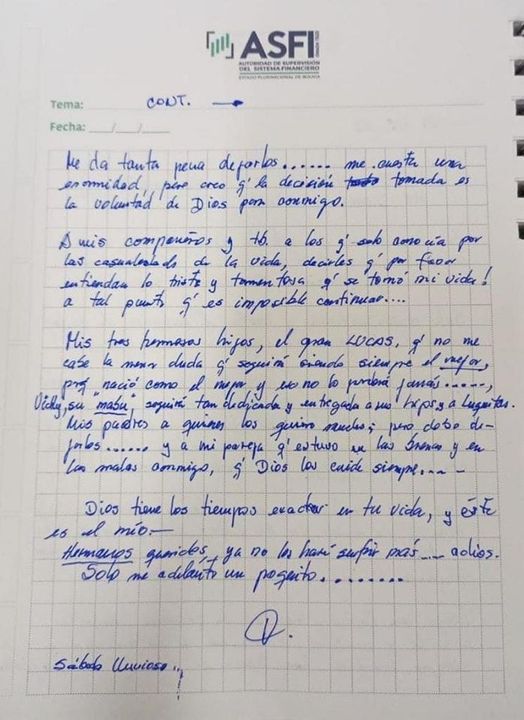 ASFI
AUTORIDAD DE SUPERVISIÓN
DEL SISTEMA FINANCIERO
ESTADO PLURINACIONAL DE BOLIVIA
Tema: CONT. →
Fecha: ___/___/___
Me da tanta pena dejarlos...... me cuesta una
enormidad, pero creo q' la decisión tomada es
la voluntad de Dios para conmigo.
A mis compañeros y tb. a los q' solo conocía por
las casualidades de la vida, decirles q' por favor
entiendan lo triste y tormentosa q' se tornó mi vida!
a tal punto q' es imposible continuar....
Mis tres hermosos hijos, el gran LUCAS, q' no me
cabe la menor duda q' seguirá siendo siempre el mejor,
porq' nació como el mejor y eso no lo perderá jamás.....,
Vicky, su "mabu", seguirá tan dedicada y entregada a sus hijos y a Luquitas.
Mis padres a quienes los quiero mucho; pero debo de-
jarlos...... y a mi pareja q' estuvo en las buenas y en
las malas conmigo, q' Dios los cuide siempre....-
Dios tiene los tiempos exactos en tu vida, y éste
es el mío.-
Hermanos queridos, ya no los haré sufrir más.... adios.
Solo me adelanto un poquito........
Sábado lluvioso..